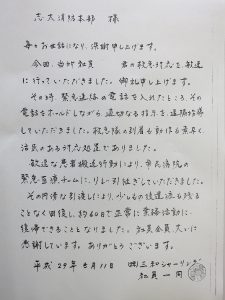 志太消防本部 様
毎々お世話になり、深謝申し上げます。
今回、当社社員 君の救急対応を敏速
に行っていただきました。御礼申し上げます。
その時 緊急連絡の電話を入れたところ、その
電話をホールドしながら 適切なる指示を、遠隔指導
していただきました。救急隊の到着も動作も素早く、
活気のある対応処置でありました。
敏速な患者搬送行動により、市民病院の
緊急医療チームに、引き継ぎしていただきました。
その円滑な引渡しにより、少しもの後遺症も残る
ことなく回復し、約60日で正常に業務活動に
復帰できることとなりました。社員全員 大いに
感謝しています。ありがとうございます。
平成29年8月11日 ㈱三和シャーリング
社員一同